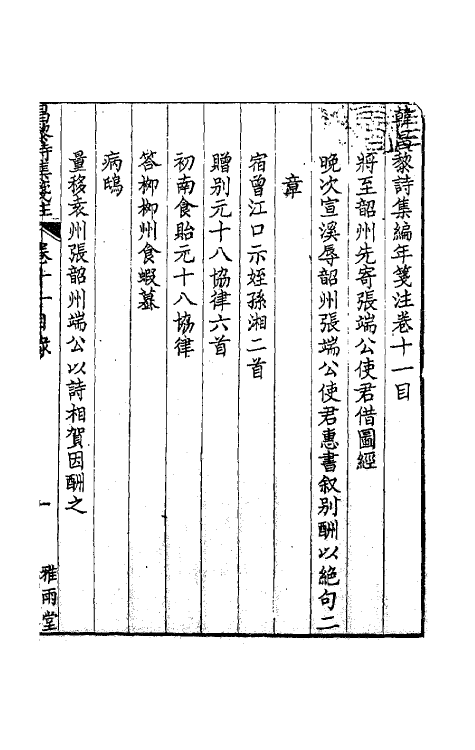 韓昌黎詩集編年箋注卷十一目
將至韶州先寄張端公使君借圖經
晩次宣溪辱韶州張端公使君惠書叙別酬以絕句二
章
宿曾江口示姪孫湘二首
贈別元十八協律六首
初南食貽元十八協律
答柳柳州食蝦蟇
病鴟
量移袁州張韶州端公以詩相賀因酬之
昌黎詩集箋注 卷十一目錄 一 雅雨堂